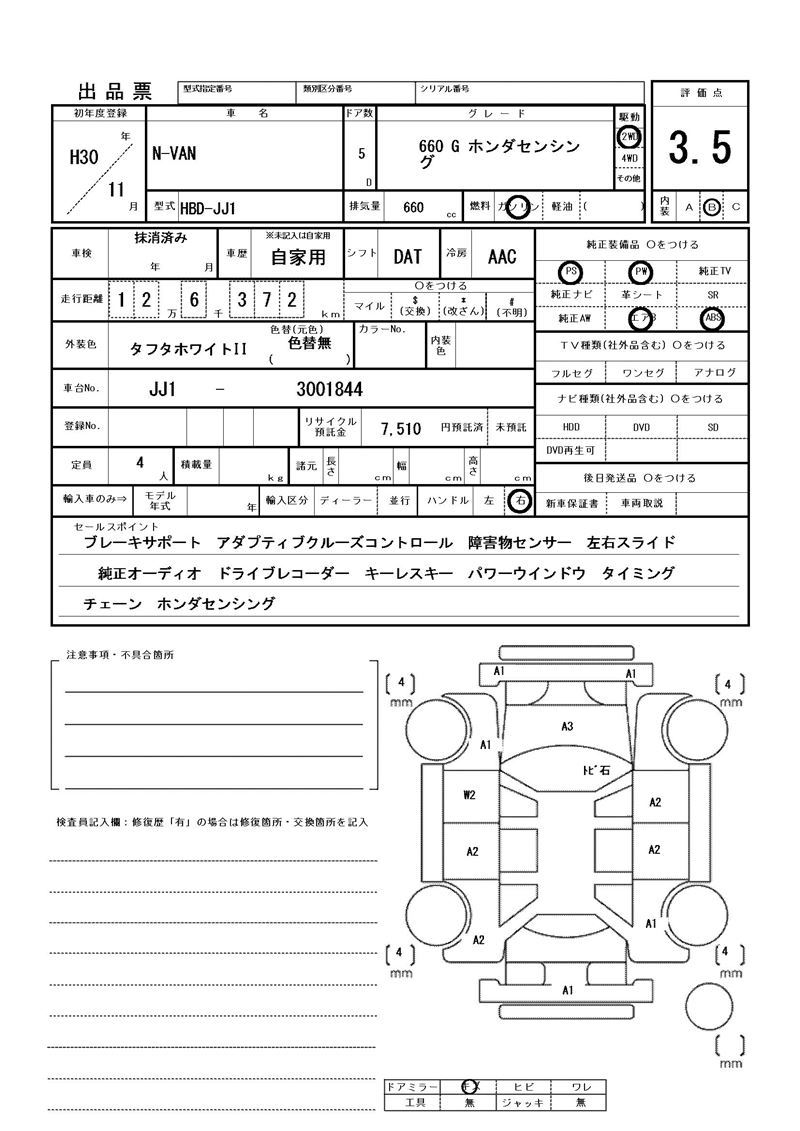 出品票
型式指定番号 類別区分番号 シリアル番号
評価点
3.5
内装 A B C
初年度登録 車名 ドア数 グレード 駆動
H30 年 11 月
N-VAN
5 D
660 G ホンダセンシン
グ
2WD
4WD
その他
型式 HBD-JJ1 排気量 660 cc 燃料 ガソリン 軽油 ( )
車検 抹消済み 年 月
車歴 ※未記入は自家用 自家用
シフト DAT 冷房 AAC
走行距離 12万 6千 372 km
○をつける
マイル $(交換) *(改ざん) #(不明)
外装色 タフタホワイトII
色替(元色)
色替無
( )
カラーNo. 内装色
車台No. JJ1 − 3001844
登録No. リサイクル預託金 7,510 円預託済 未預託
定員 4 人 積載量 kg 諸元 長さ cm 幅 cm 高さ cm
輸入車のみ⇒ モデル年式 年 輸入区分 ディーラー 並行 ハンドル 左 右
純正装備品 ○をつける
PS PW 純正TV
純正ナビ 革シート SR
純正AW エアB ABS
TV種類(社外品含む) ○をつける
フルセグ ワンセグ アナログ
ナビ種類(社外品含む) ○をつける
HDD DVD SD
DVD再生可
後日発送品 ○をつける
新車保証書 車両取説
セールスポイント
ブレーキサポート アダプティブクルーズコントロール 障害物センサー 左右スライド
純正オーディオ ドライブレコーダー キーレスキー パワーウインドウ タイミング
チェーン ホンダセンシング
注意事項・不具合箇所
検査員記入欄：修復歴「有」の場合は修復箇所・交換箇所を記入
A1 A1
4 mm
4 mm
A3
A1
ﾄﾋﾞ石
W2 A2
A2 A2
A2 A1
4 mm
4 mm
A1
mm
ドアミラー キズ ヒビ ワレ
工具 無 ジャッキ 無